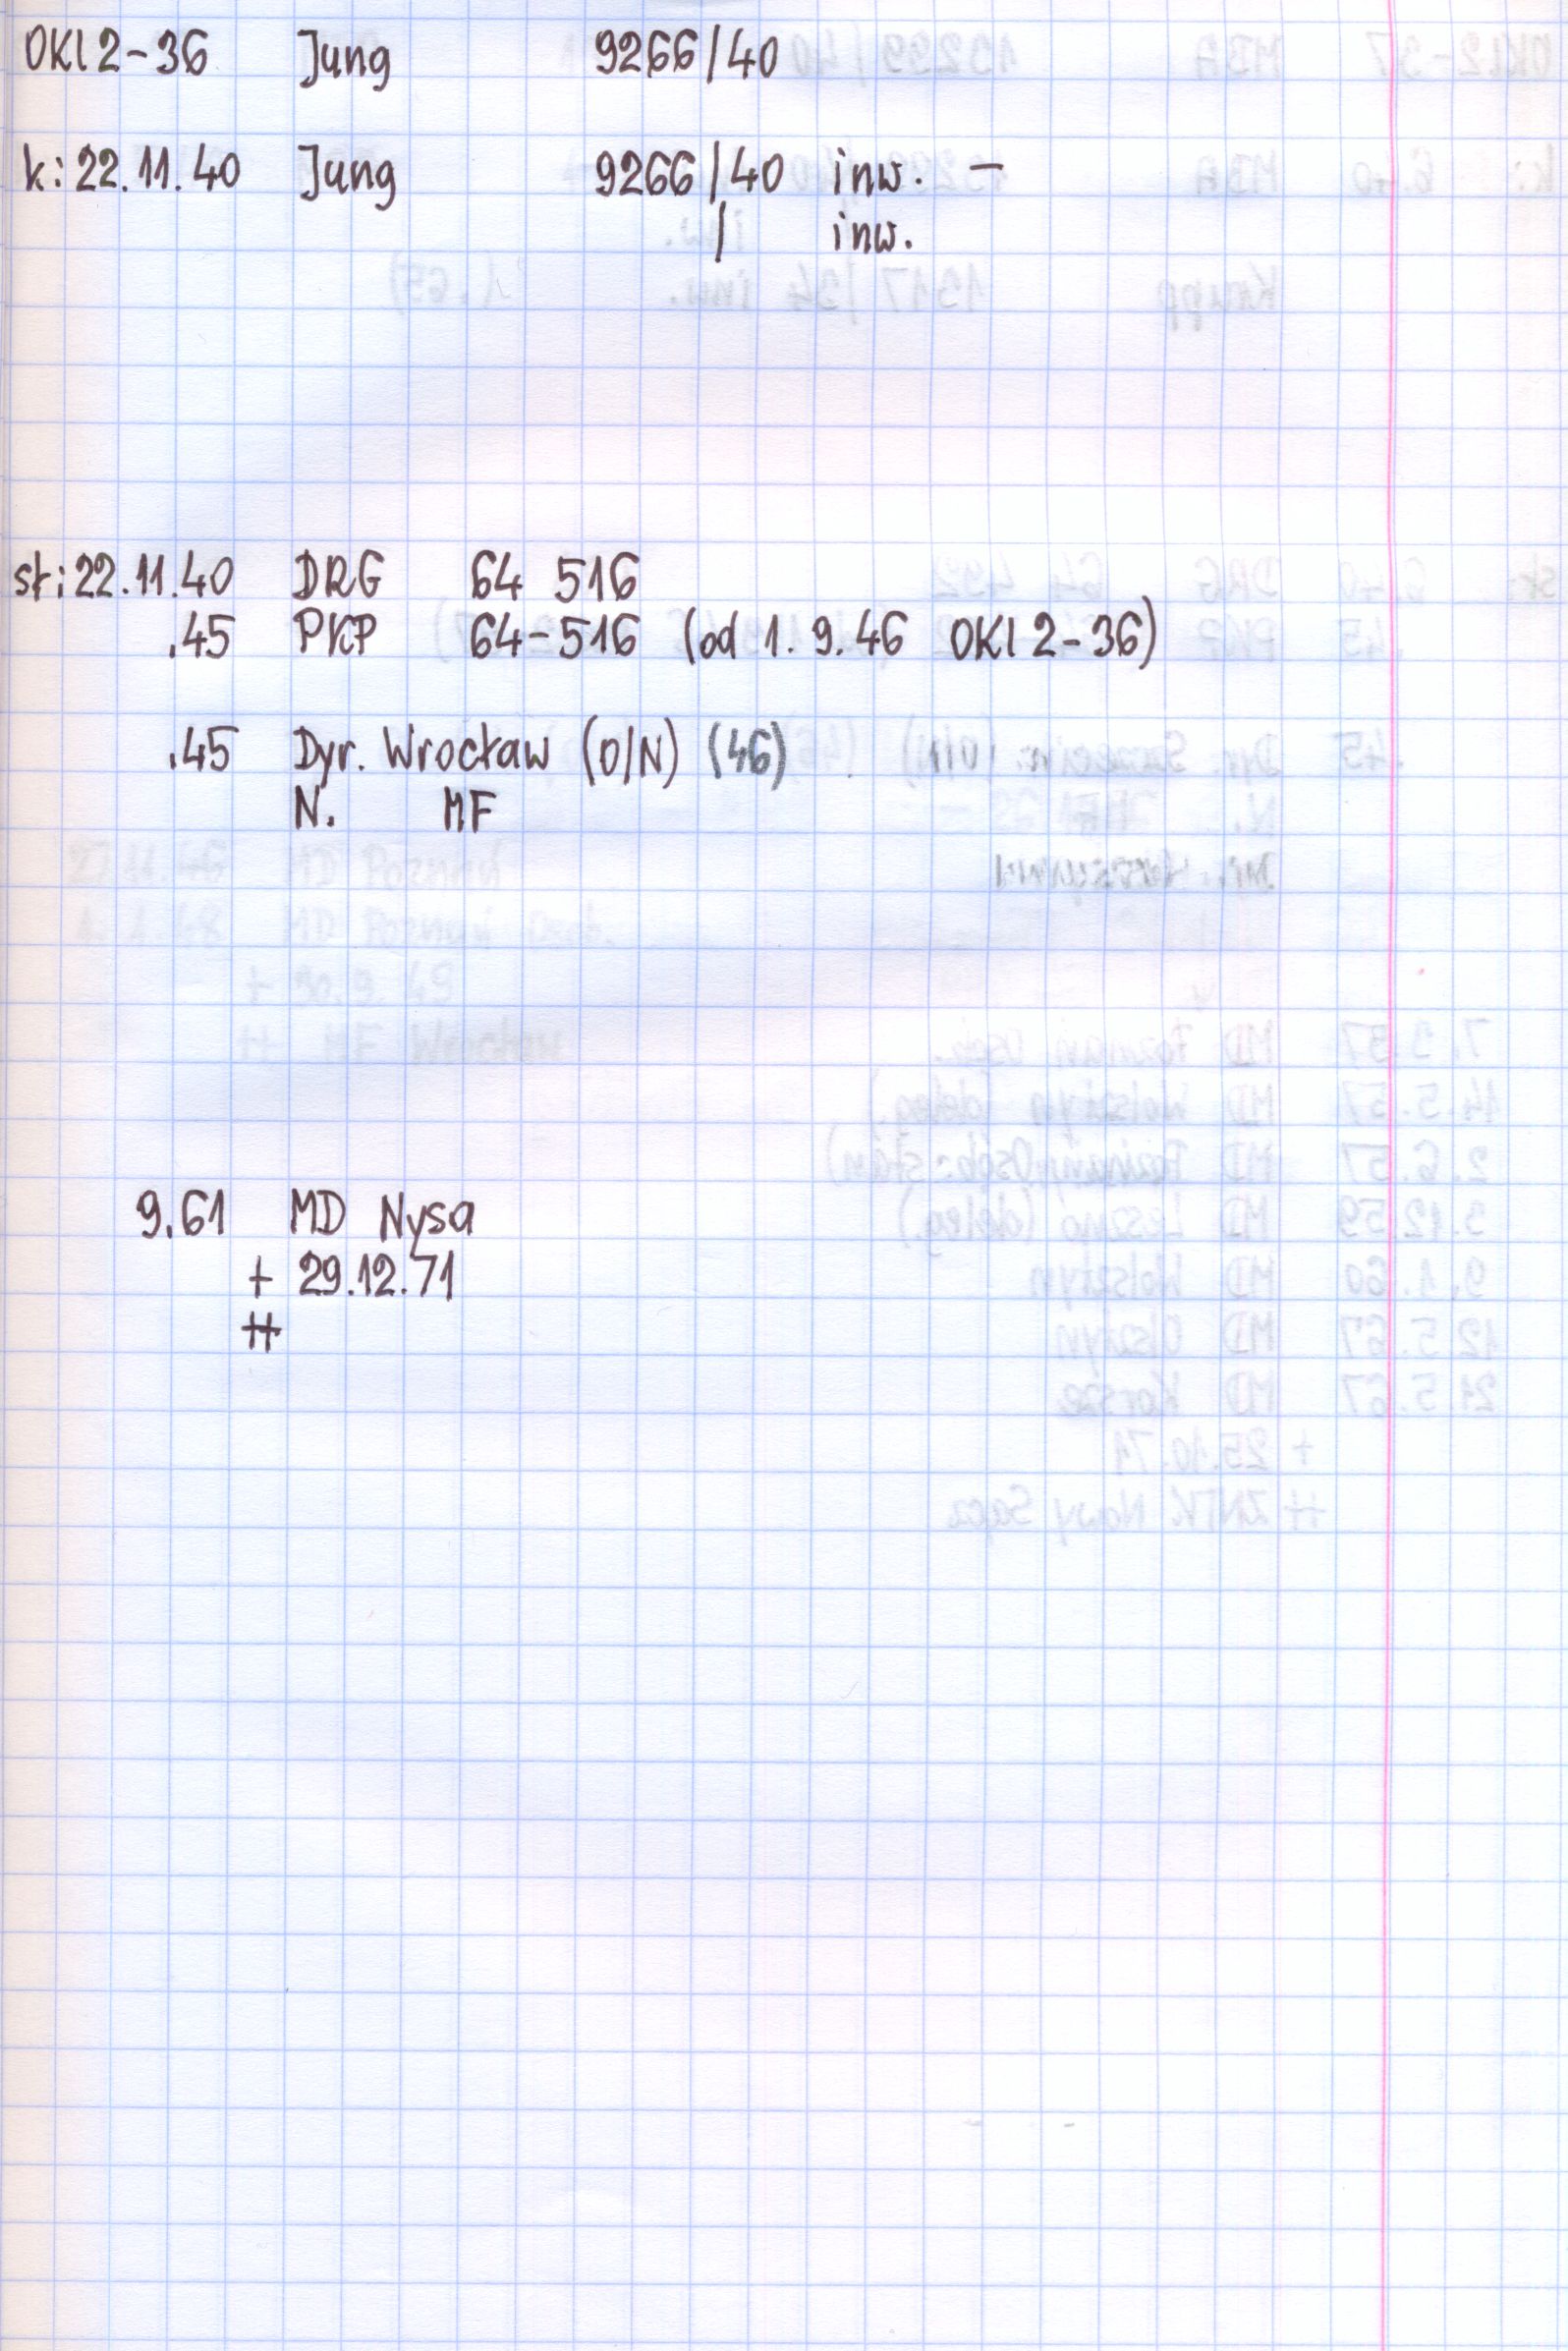 OKl 2-36 Jung 9266/40
k: 22.11.40 Jung 9266/40 inw. –
/ inw.
st: 22.11.40 DRG 64 516
.45 PKP 64-516 (od 1.9.46 OKl 2-36)
.45 Dyr. Wrocław (O/N) (46)
N. MF
9.61 MD Nysa
+ 29.12.71
++